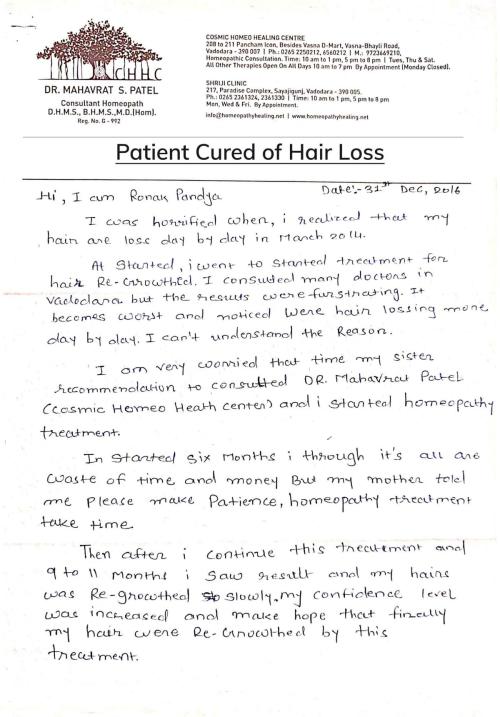 COSMIC HOMEO HEALING CENTRE
208 to 211 Pancham Icon, Besides Vasna D-Mart, Vasna-Bhayli Road,
Vadodara - 390 007 | Ph.: 0265 2250212, 6560212 | M.: 9723669210,
Homeopathic Consultation. Time: 10 am to 1 pm, 5 pm to 8 pm | Tues, Thu & Sat.
All Other Therapies Open On All Days 10 am to 7 pm By Appointment (Monday Closed).
CHHC
DR. MAHAVRAT S. PATEL
Consultant Homeopath
D.H.M.S., B.H.M.S.,M.D.(Hom).
Reg. No. G - 992
SHRIJI CLINIC
217, Paradise Complex, Sayajigunj, Vadodara - 390 005.
Ph.: 0265 2361324, 2361330 | Time: 10 am to 1 pm, 5 pm to 8 pm
Mon, Wed & Fri. By Appointment.
info@homeopathyhealing.net | www.homeopathyhealing.net
Patient Cured of Hair Loss
Date:- 31st Dec, 2016
Hi, I am Ronak Pandya
I was horrified when, i realized that my
hair are loss day by day in March 2014.
At Started, i went to started treatment for
hair Re-Growthed. I consulted many doctors in
Vadodara but the results were furstrating. It
becomes worst and noticed were hair lossing more
day by day. I can't understand the Reason.
I am very worried that time my sister
recommendation to consulted DR. Mahavrat Patel
(Cosmic Homeo Heath center) and i started homeopathy
treatment.
In Started six Months i through it's all are
waste of time and money But my mother told
me please make Patience, homeopathy treatment
take time.
Then after i continue this treatement and
9 to 11 Months i saw result and my hairs
was Re-growthed slowly, my confidence level
was increased and make hope that finally
my hair were Re-Growthed by this
treatment.